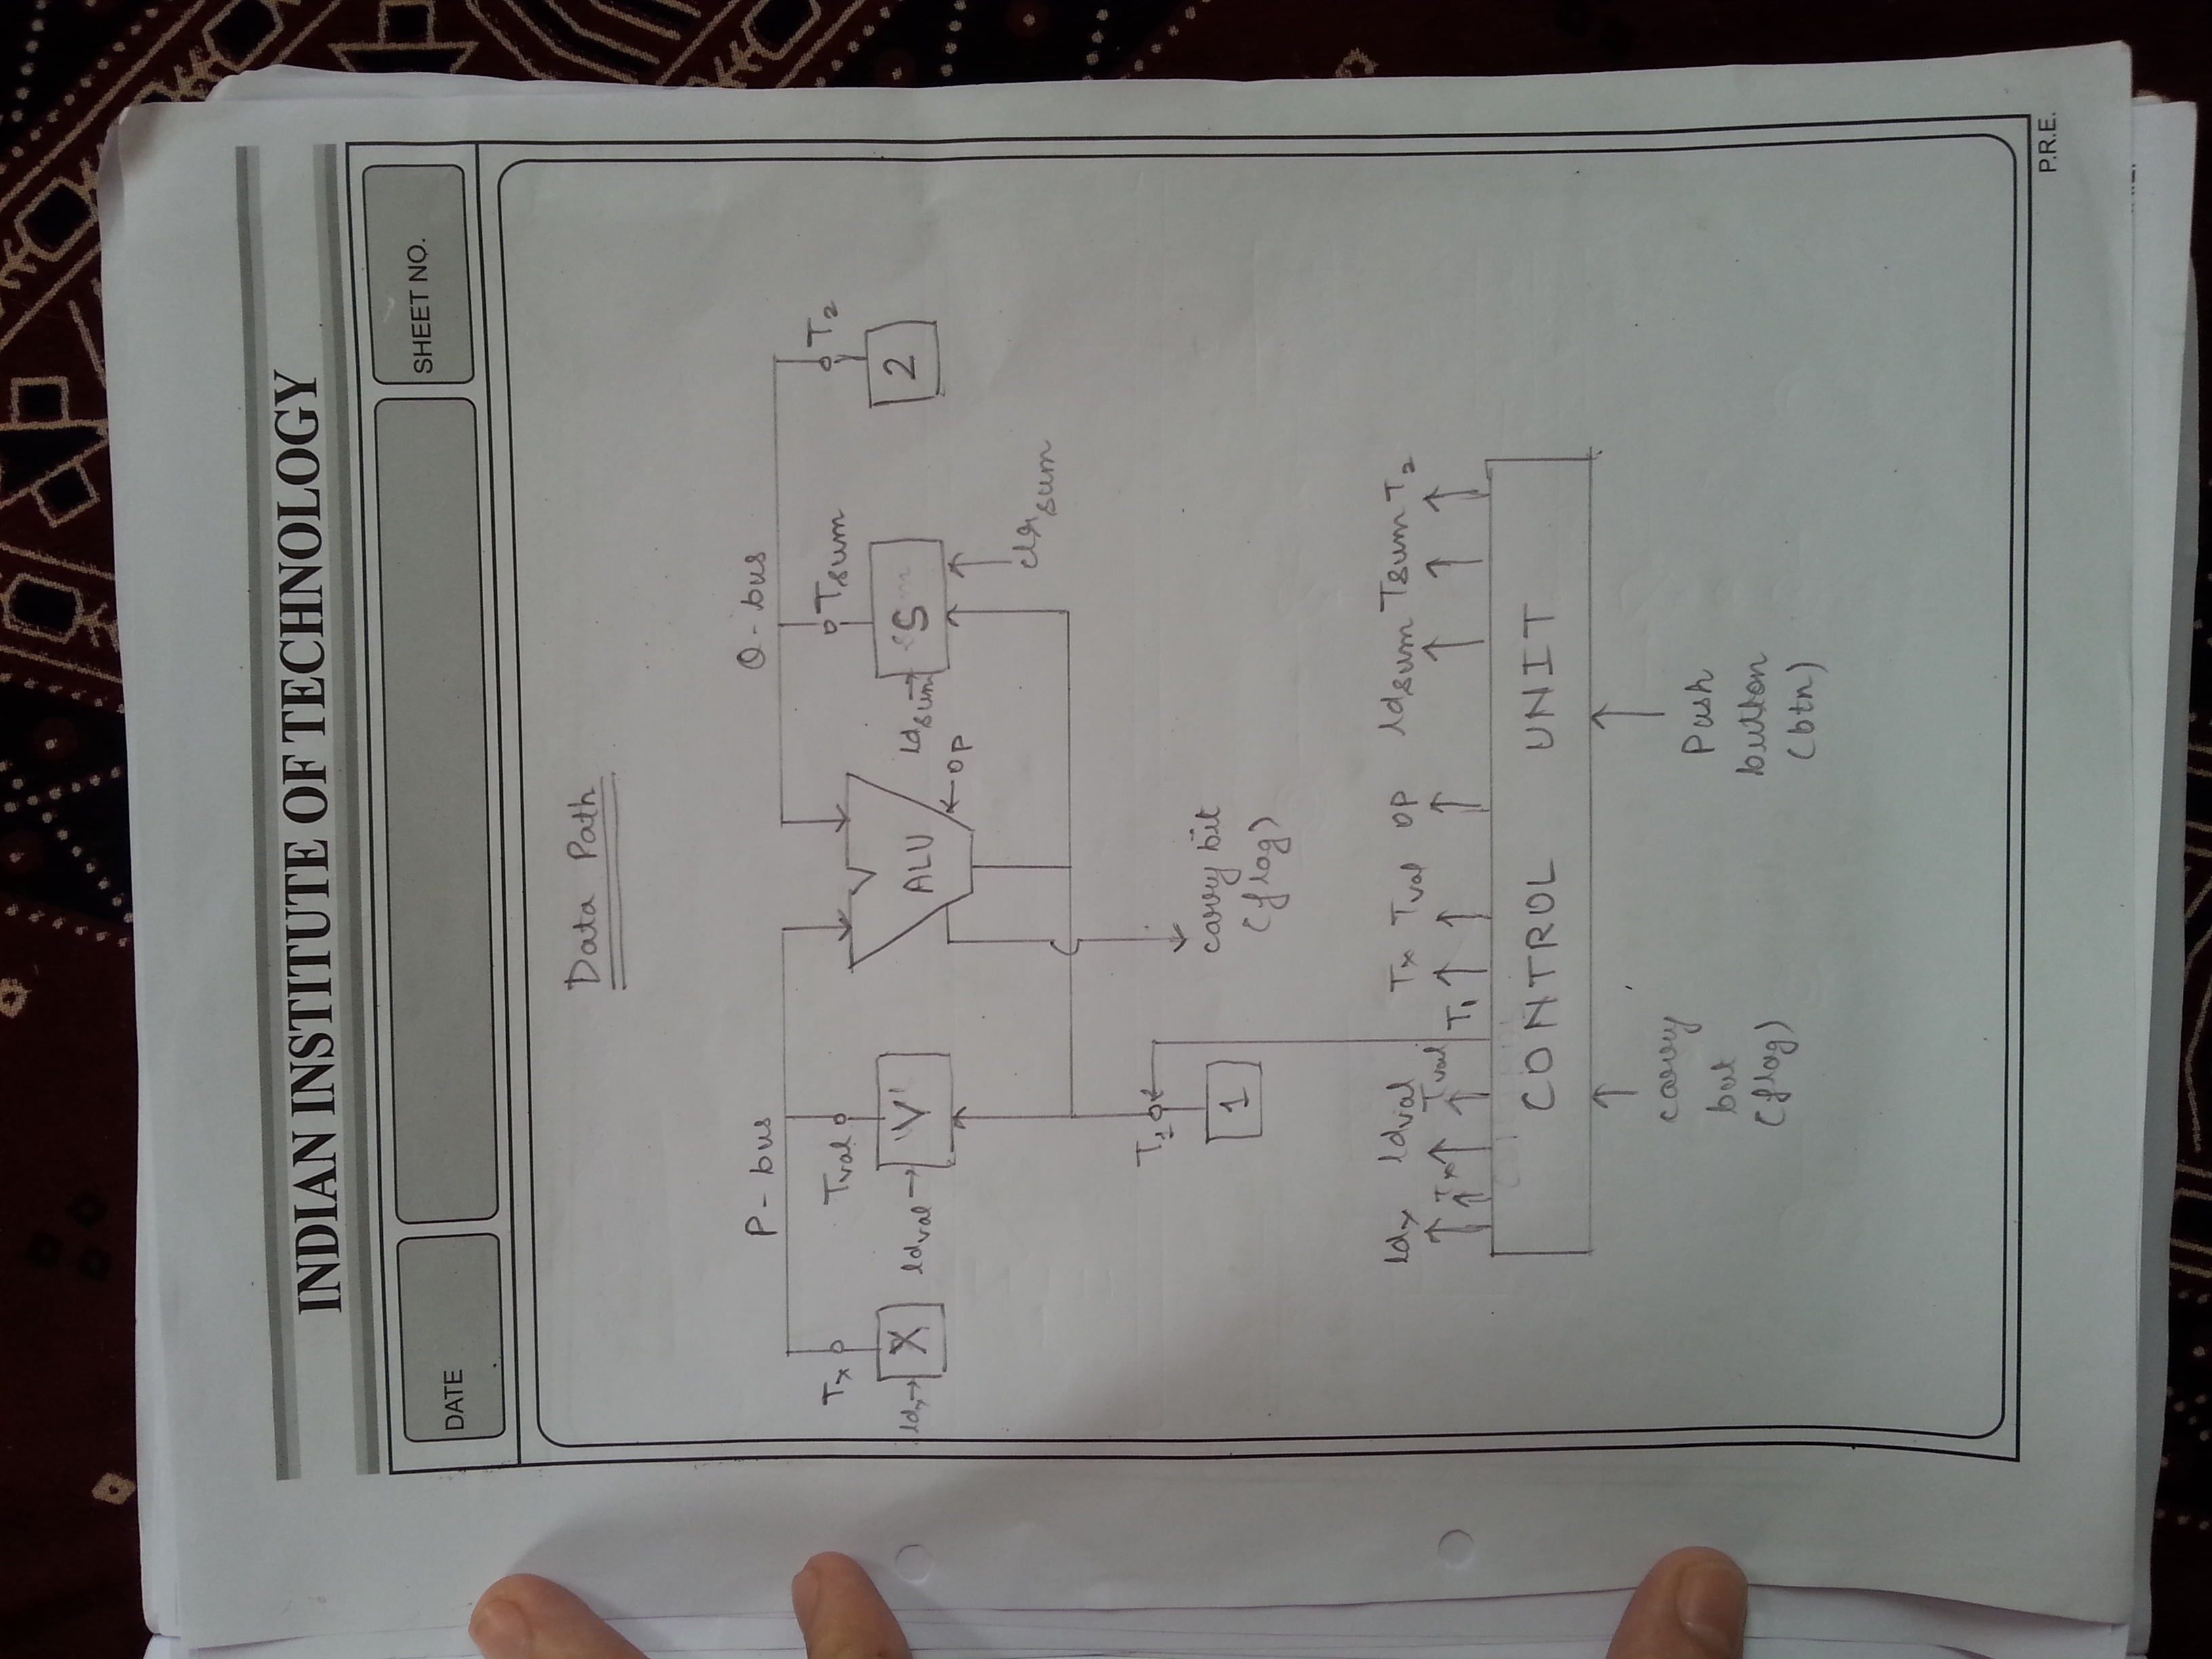 INDIAN INSTITUTE OF TECHNOLOGY
DATE
SHEET NO.
Data Path
P - bus
Q - bus
Tx
Tval
Tsum
T2
ldx
X
ldval
'V'
ALU
ldsum
S
2
op
clrsum
T1
1
carry bit
(flag)
ldx ldval Tx Tval op ldsum Tsum T2
Tx Tval T1
CONTROL UNIT
carry
but
(flag)
Push
button
(btn)
P.R.E.